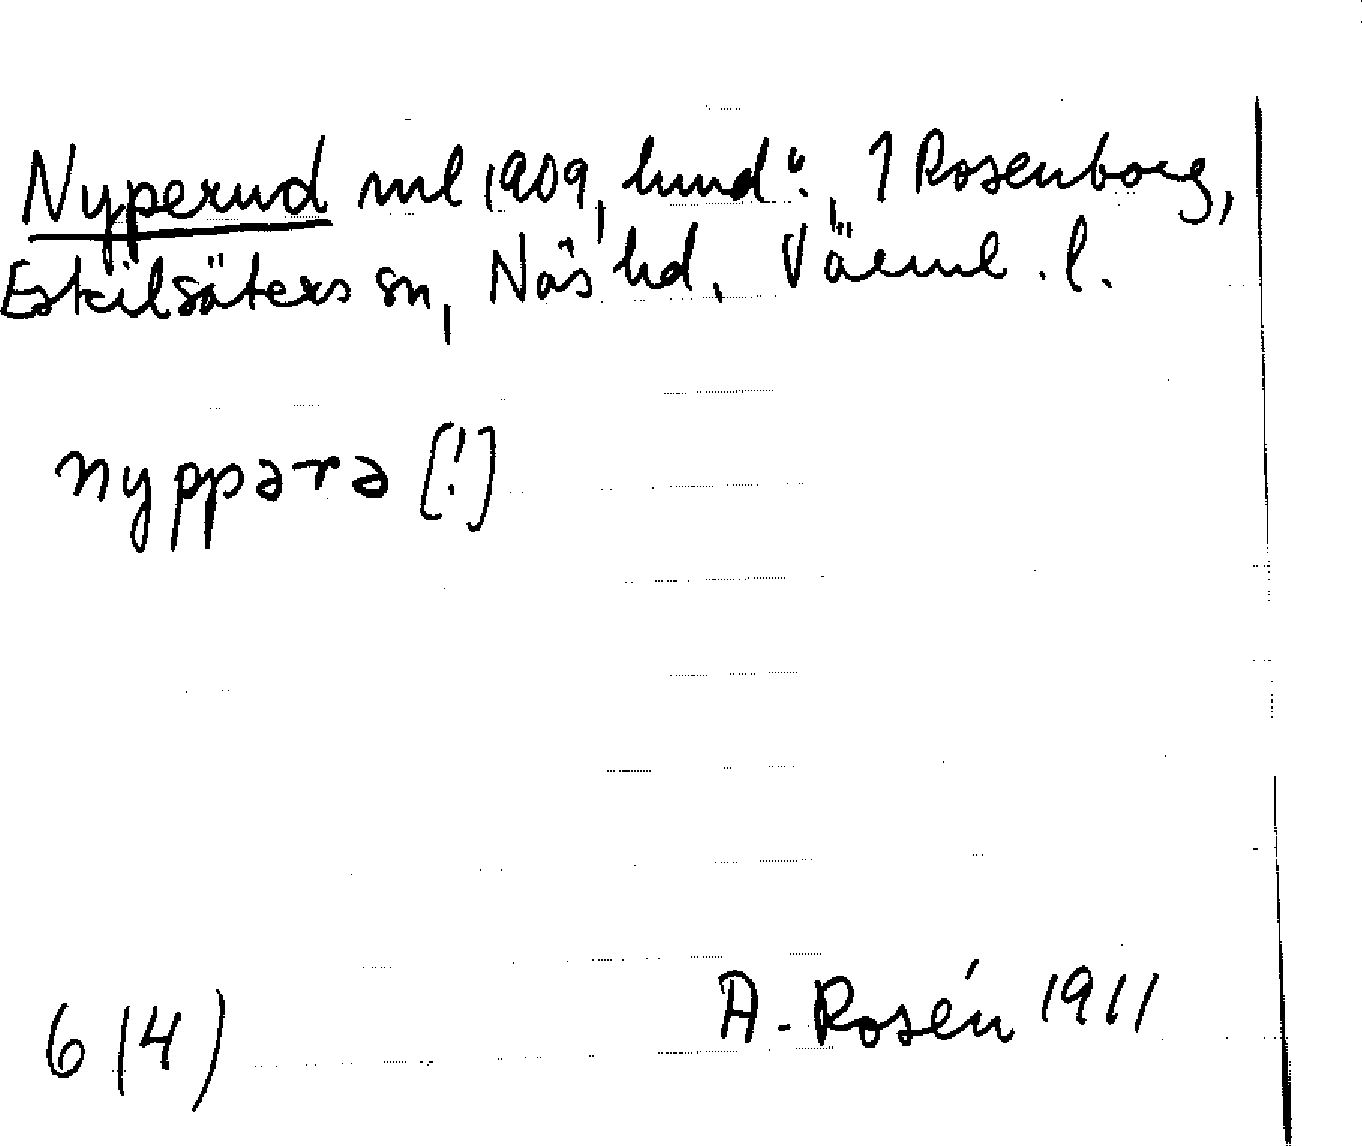 Nyperud ml 1909, lund"., 1 Rosenborg,
Eskilsäters sn, Näs hd. Värml. l.
nyppərə [!]
6 (4)
A. Rosén 1911